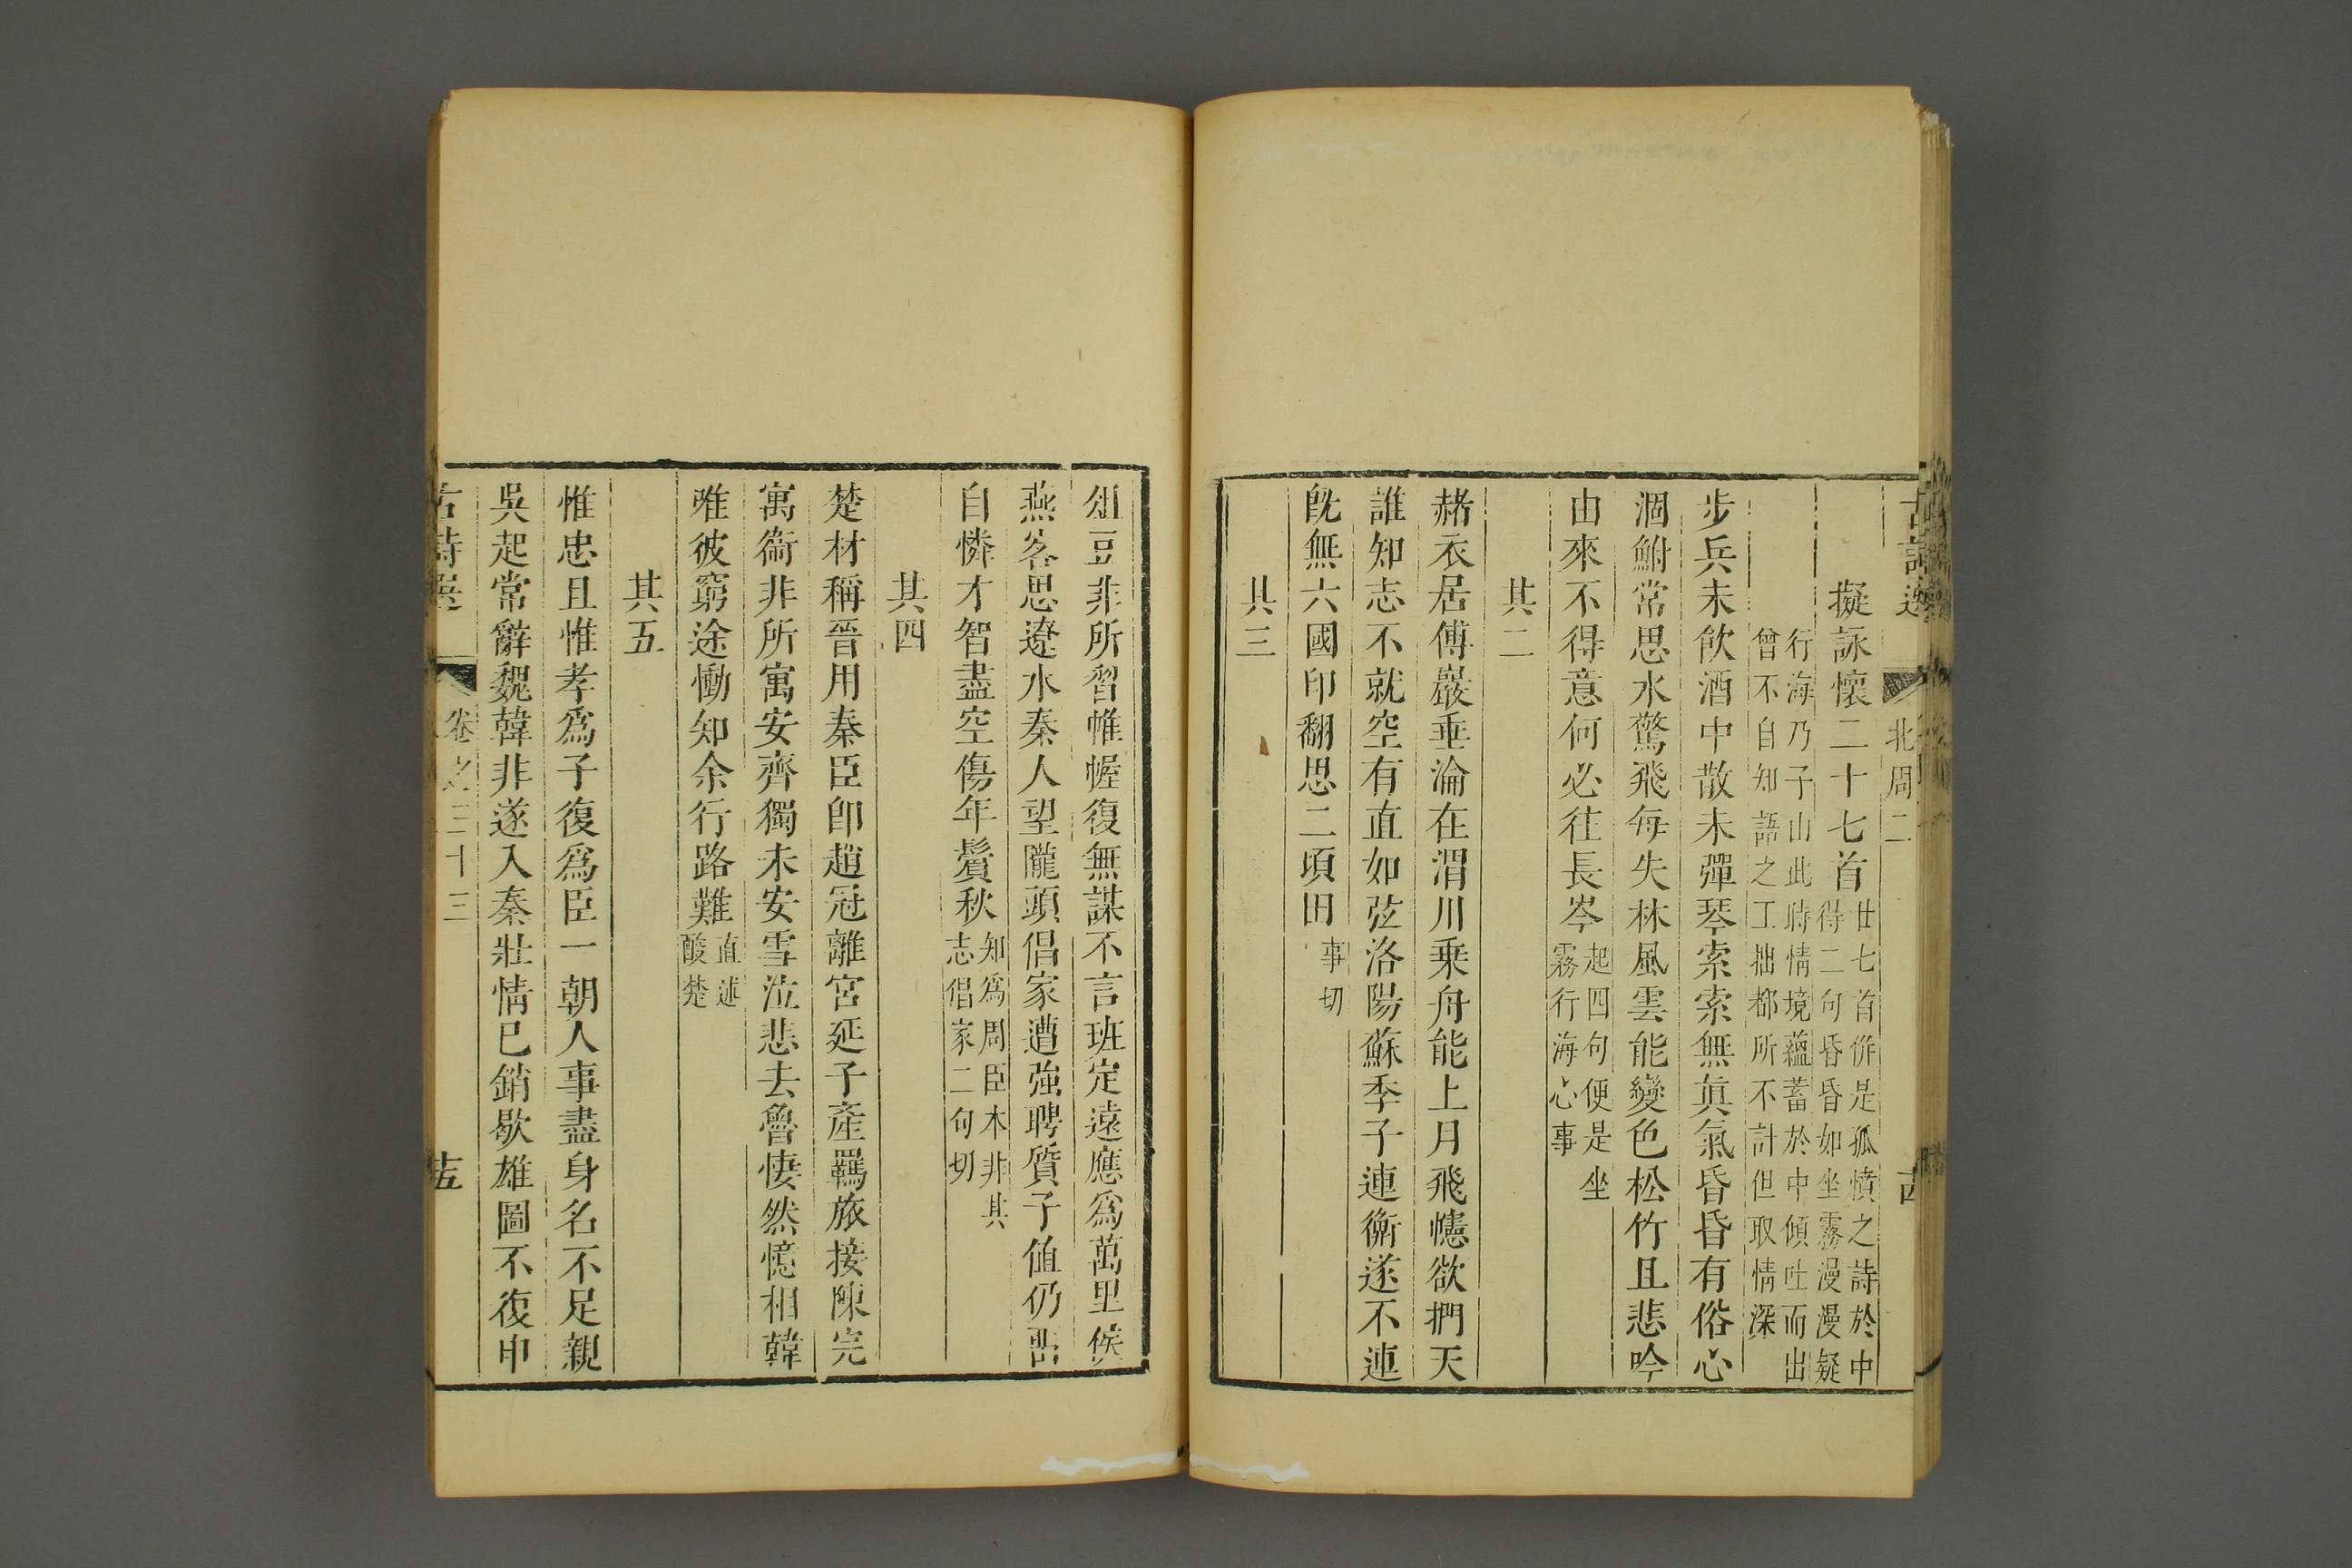 北周二
擬詠懷二十七首廿七首併是孤憤之詩於中
得二句昏昏如坐霧漫漫疑
行海乃子山此時情境蘊蓄於中傾吐而出
曾不自知語之工拙都所不計但取情深
步兵未飲酒中散未彈琴索索無真氣昏昏有俗心
涸鮒常思水驚飛每失林風雲能變色松竹且悲吟
由來不得意何必往長岑起四句便是坐
霧行海心事
其二
赭衣居傅巖垂淪在渭川乘舟能上月飛幰欲捫天
誰知志不就空有直如弦洛陽蘇季子連衡遂不連
旣無六國印翻思二頃田事切
其三
俎豆非所習帷幄復無謀不言班定遠應爲萬里侯
燕客思遼水秦人望隴頭倡家遭強聘質子值仍留
自憐才智盡空傷年鬢秋知爲周臣本非其
志倡家二句切
其四
楚材稱晉用秦臣卽趙冠離宮延子產羈旅接陳完
寓衞非所寓安齊獨未安雪泣悲去魯悽然憶相韓
唯彼窮途慟知余行路難直述
酸楚
其五
惟忠且惟孝爲子復爲臣一朝人事盡身名不足親
吳起常辭魏韓非遂入秦壯情已銷歇雄圖不復申
卷之三十三